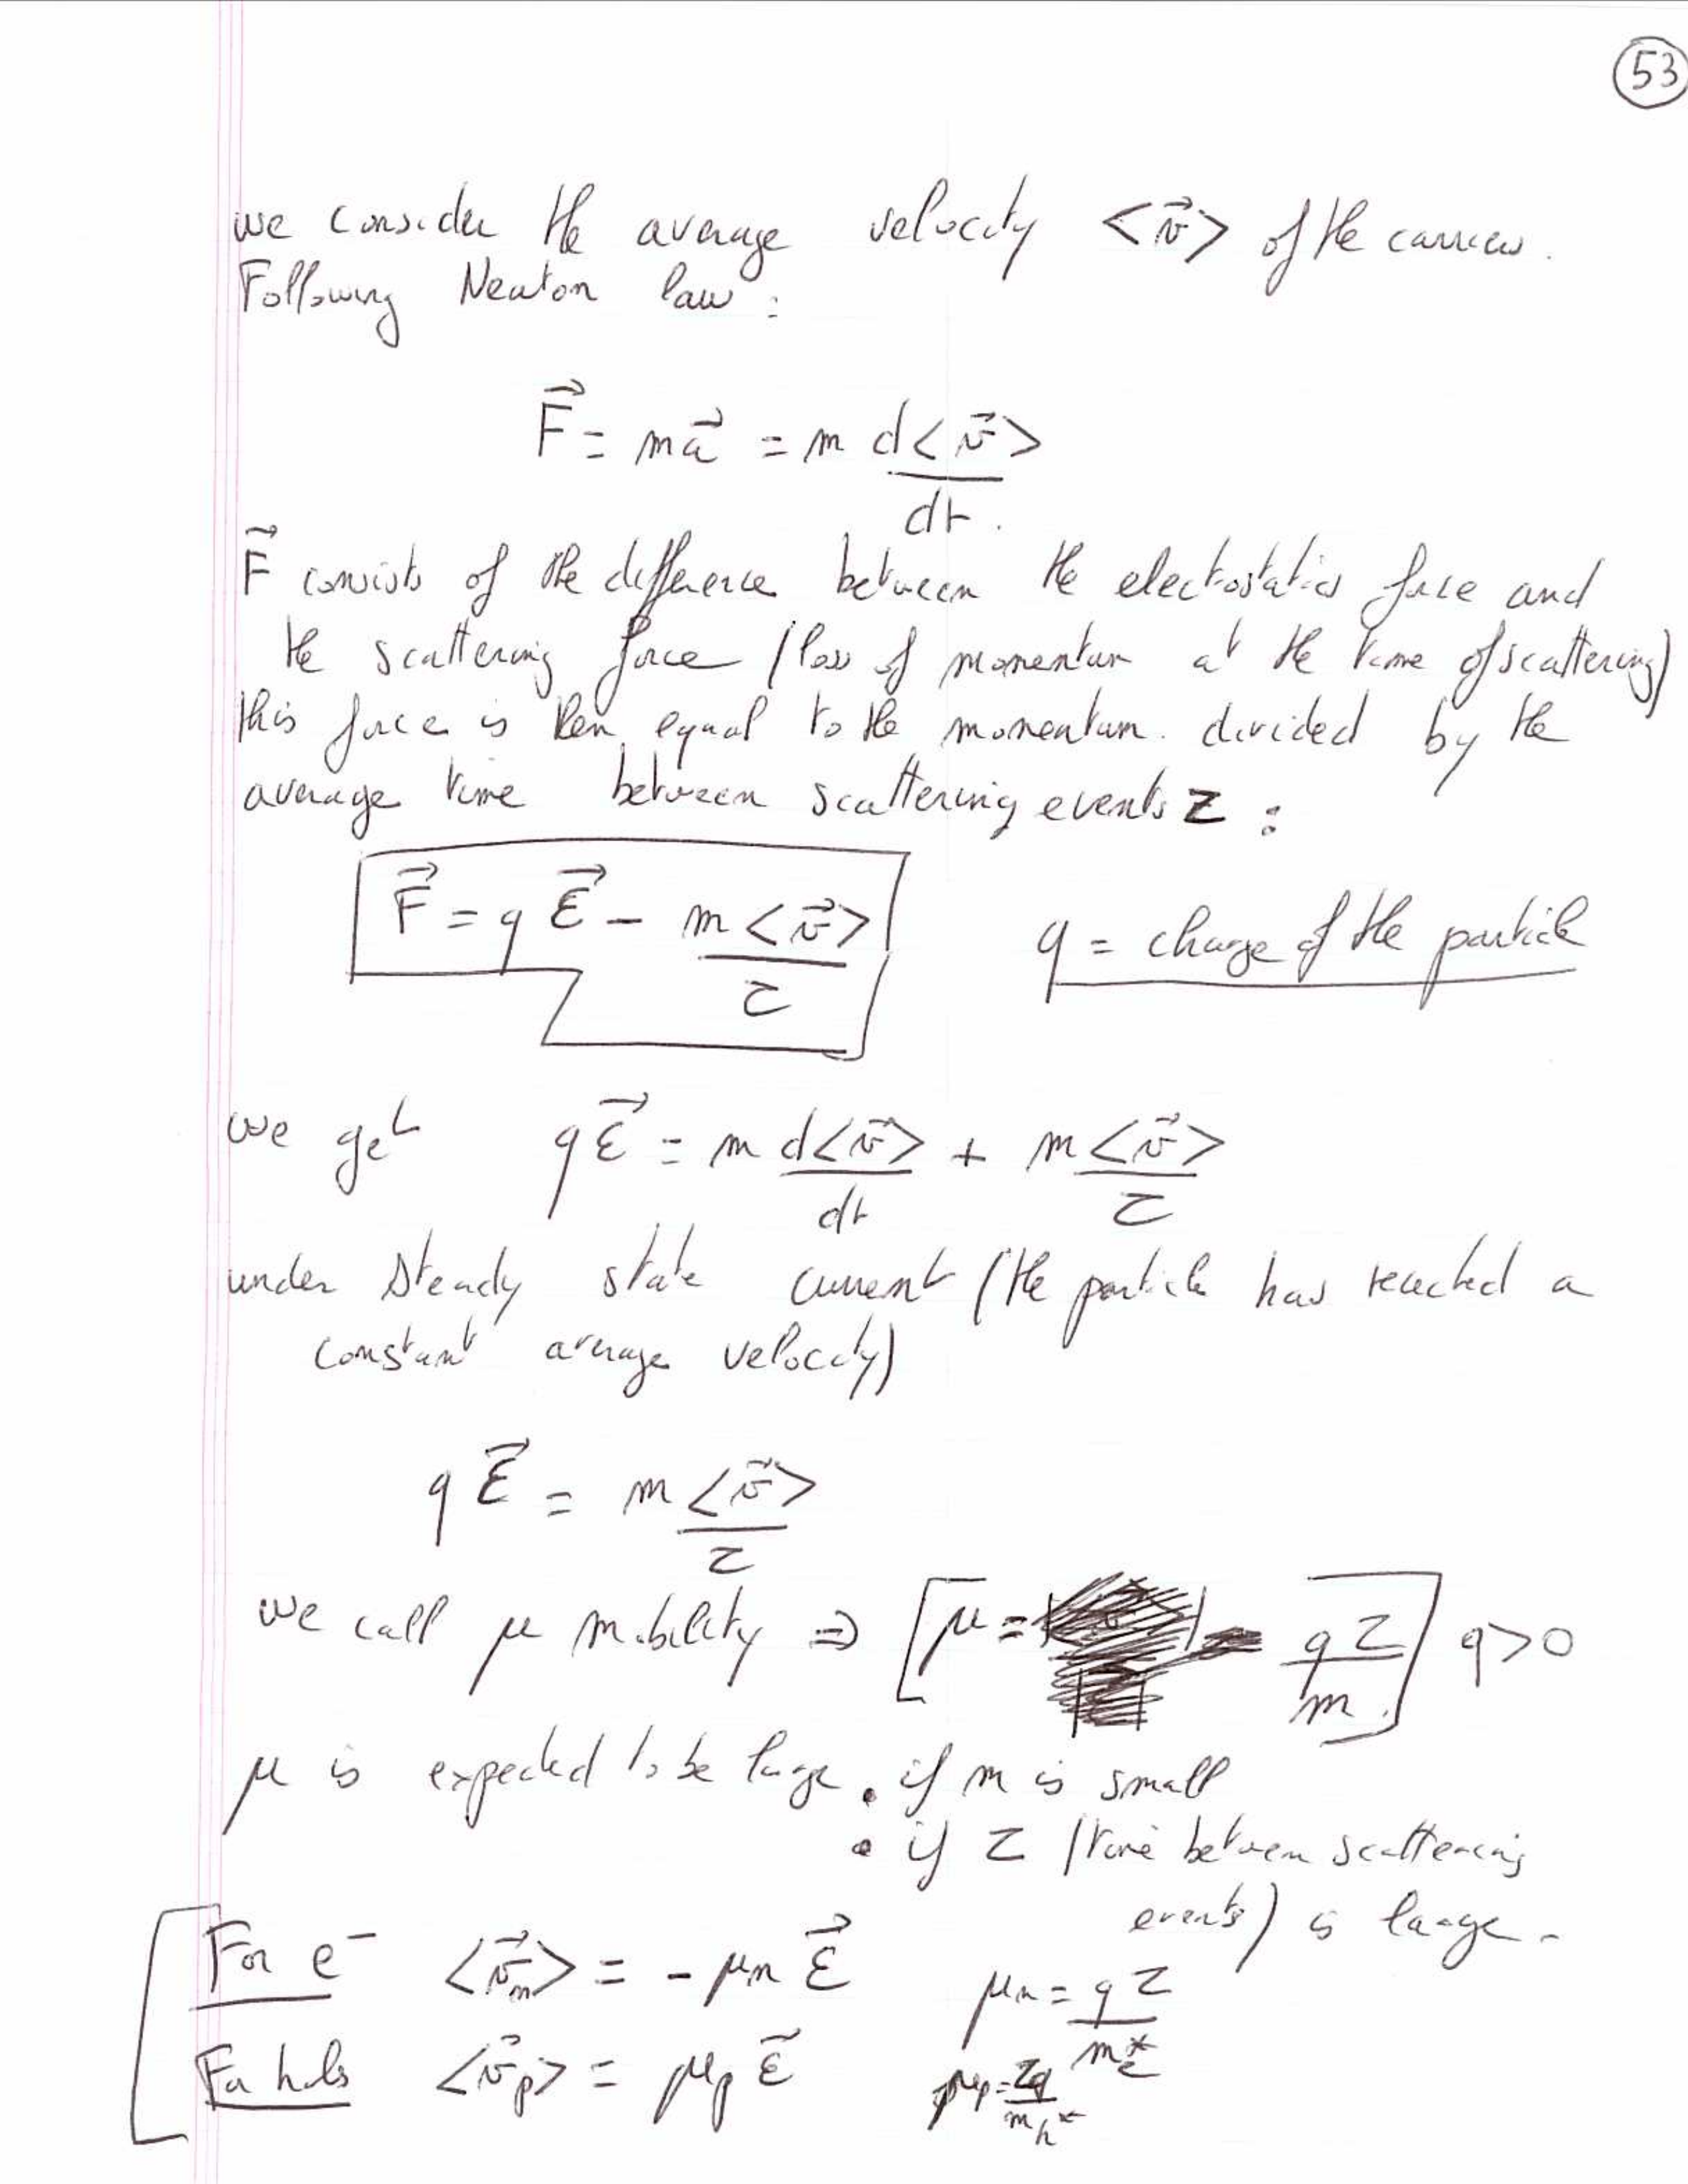 53
we consider the average velocity <v⃗> of the carriers.
Following Newton law:
F⃗ = ma⃗ = m d<v⃗>/dt.
F⃗ consists of the difference between the electrostatics force and
the scattering force (loss of momentum at the time of scattering)
this force is then equal to the momentum. divided by the
average time between scattering events τ :
F⃗ = q ℰ⃗ - m<v⃗>/τ q = charge of the particle
we get qℰ⃗ = m d<v⃗>/dt + m<v⃗>/τ
under steady state current (the particle has reached a
constant average velocity)
q ℰ⃗ = m<v⃗>/τ
we call μ mobility ⇒ [μ = qτ/m.] q>0
μ is expected to be large • if m is small
• if τ (time between scattering
events) is large.
For e⁻ <v⃗n> = - μn ℰ⃗ μn = qτ/me*
For holes <v⃗p> = μp ℰ⃗ μp = τq/mh*